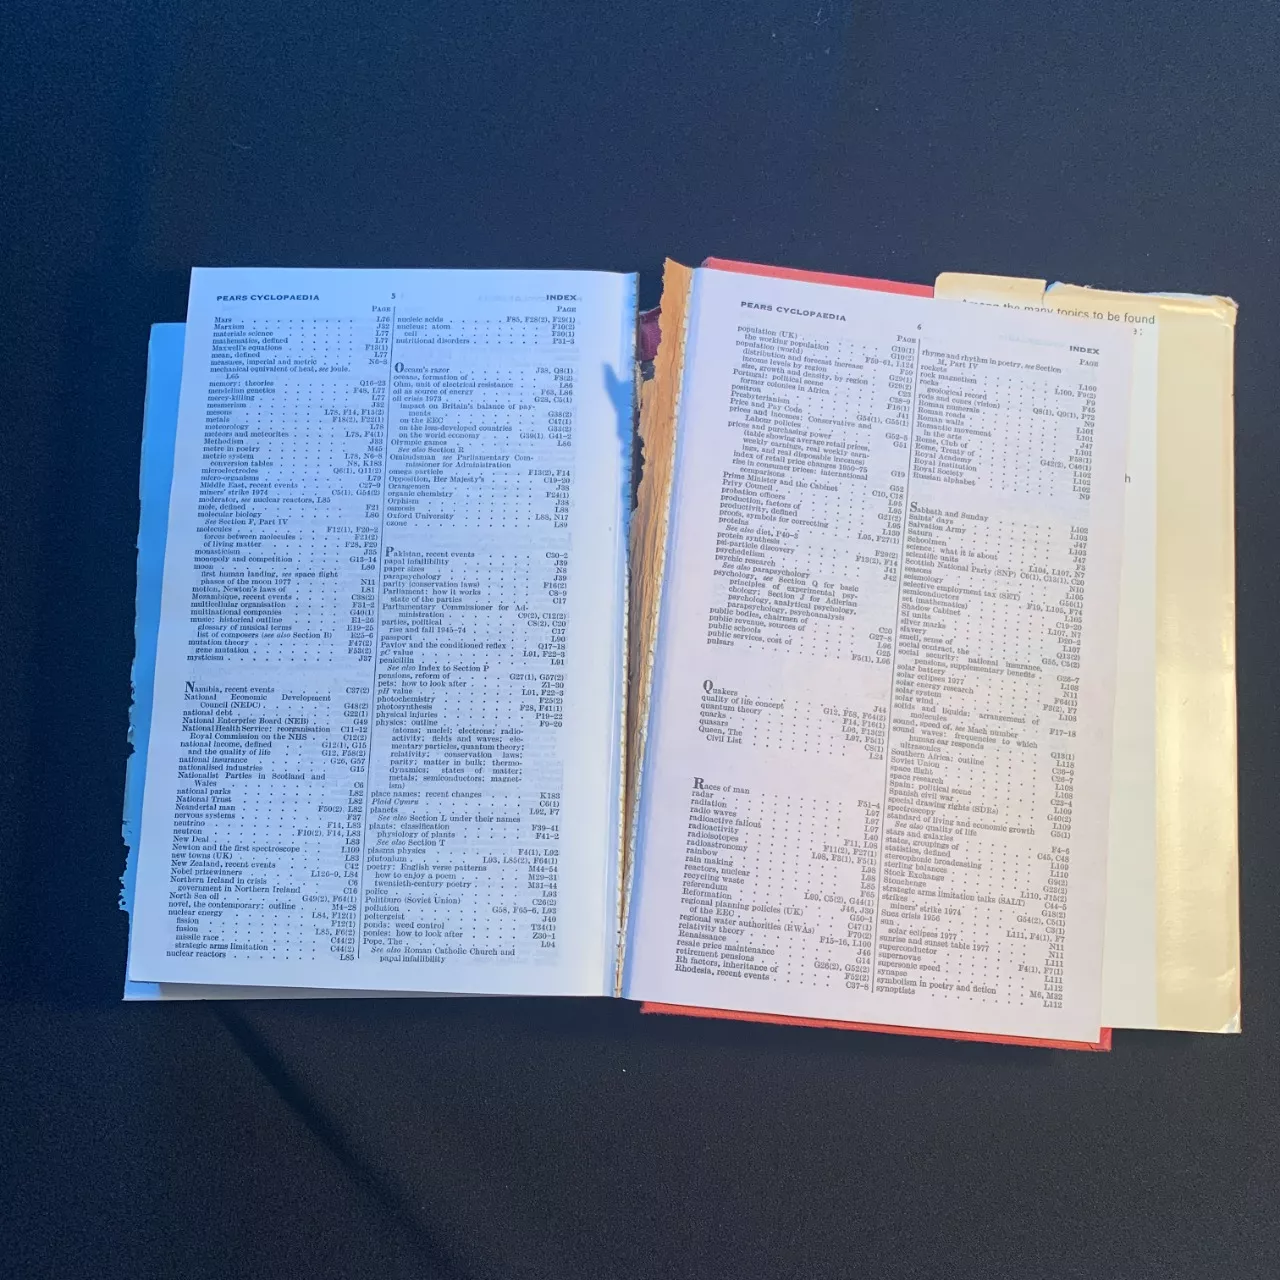 PEARS CYCLOPAEDIA 5 INDEX
PAGE
Mars . . . L76
Marxism . . . J32
materials science . . . L77
mathematics, defined . . . L77
Maxwell's equations . . . F13(1)
mean, defined . . . L77
measures, imperial and metric . . N6–8
mechanical equivalent of heat, see joule.
L65
memory: theories . . . Q16–23
mendelian genetics . . . F48, L77
mercy-killing . . . L77
mesmerism . . . J32
mesons . . . L78, F14, F15(2)
metals . . . F18(2), F22(1)
meteorology . . . L78
meteors and meteorites . . L78, F4(1)
Methodism . . . J33
metre in poetry . . . M45
metric system . . . L78, N6–8
conversion tables . . N8, K183
microelectrodes . . . Q6(1), Q11(2)
micro-organisms . . . L79
Middle East, recent events . . C27–9
miners' strike 1974 . . C5(1), G54(2)
moderator, see nuclear reactors, L85
mole, defined . . . F21
molecular biology . . . L80
See Section F, Part IV
molecules . . . F12(1), F20–2
forces between molecules . . F21(2)
of living matter . . . F28, F29
monasticism . . . J35
monopoly and competition . . G13–14
moon . . . L80
first human landing, see space flight
phases of the moon 1977 . . N11
motion, Newton's laws of . . L81
Mozambique, recent events . . C38(2)
multicellular organisation . . F31–2
multinational companies . . G40(1)
music: historical outline . . E1–26
glossary of musical terms . . E19–25
list of composers (see also Section B) E25–6
mutation theory . . . F47(2)
gene mutation . . . F53(2)
mysticism . . . J37
Namibia, recent events . . C37(2)
National Economic Development
Council (NEDC) . . . G48(2)
national debt . . . G22(1)
National Enterprise Board (NEB) . G49
National Health Service: reorganisation C11–12
Royal Commission on the NHS . C12(2)
national income, defined . G12(1), G15
and the quality of life . G12, F58(2)
national insurance . . . G26, G57
nationalised industries . . . G15
Nationalist Parties in Scotland and
Wales . . . C6
national parks . . . L82
National Trust . . . L82
Neanderthal man . . . F50(2) L82
nervous systems . . . F37
neutrino . . . F14, L83
neutron . . . F10(2), F14, L83
New Deal . . . L83
Newton and the first spectroscope . L109
new towns (UK) . . . L83
New Zealand, recent events . . C42
Nobel prizewinners . . L126–9, L84
Northern Ireland in crisis . . C6
government in Northern Ireland . C16
North Sea oil . . . G49(2), F64(1)
novel, the contemporary: outline . M4–28
nuclear energy . . . L84, F12(1)
fission . . . F12(1)
fusion . . . L85, F6(2)
missile race . . . C44(2)
strategic arms limitation . . C44(2)
nuclear reactors . . . L85
PAGE
nucleic acids . . F85, F28(2), F29(1)
nucleus: atom . . . F10(2)
cell . . . F30(1)
nutritional disorders . . . P31–3
Occam's razor . . . J38, Q8(1)
oceans, formation of . . . F8(2)
Ohm, unit of electrical resistance . L86
oil as source of energy . . F63, L86
oil crisis 1973 . . . G28, C5(1)
impact on Britain's balance of pay-
ments . . . G38(2)
on the EEC . . . C47(1)
on the less-developed countries . G33(2)
on the world economy . G39(1), G41–2
Olympic games . . . L86
See also Section R
Ombudsman see Parliamentary Com-
missioner for Administration
omega particle . . . F13(2), F14
Opposition, Her Majesty's . . C19–20
Orangemen . . . J38
organic chemistry . . . F24(1)
Orphism . . . J38
osmosis . . . L88
Oxford University . . . L88, N17
ozone . . . L89
Pakistan, recent events . . C30–2
papal infallibility . . . J39
paper sizes . . . N8
parapsychology . . . J39
parity (conservation laws) . . F16(2)
Parliament: how it works . . C8–9
state of the parties . . . C17
Parliamentary Commissioner for Ad-
ministration . . . C9(2), C12(2)
parties, political . . . C8(2), C20
rise and fall 1945–74 . . . C17
passport . . . L90
Pavlov and the conditioned reflex . Q17–18
pC value . . . L91, F22–3
penicillin . . . L91
See also Index to Section P
pensions, reform of . . G27(1), G57(2)
pets: how to look after . . Z1–30
pH value . . . L91, F22–3
photochemistry . . . F25(2)
photosynthesis . . . F28, F41(1)
physical injuries . . . P19–22
physics: outline . . . F9–20
(atoms; nuclei; electrons; radio-
activity; fields and waves; ele-
mentary particles, quantum theory;
relativity; conservation laws;
parity; matter in bulk; thermo-
dynamics; states of matter;
metals; semiconductors; magnet-
ism)
place names: recent changes . K183
Plaid Cymru . . . C6(1)
planets . . . L92, F7
See also Section L under their names
plants: classification . . . F39–41
physiology of plants . . . F41–2
See also Section T
plasma physics . . . F4(1), L92
plutonium . . . L93, L85(2), F64(1)
poetry: English verse patterns . M44–54
how to enjoy a poem . . M29–31
twentieth-century poetry . . M31–44
police . . . L93
Politburo (Soviet Union) . . C26(2)
pollution . . . G58, F65–6, L93
poltergeist . . . J40
ponds: weed control . . . T34(1)
ponies: how to look after . . Z30–1
Pope, The . . . L94
See also Roman Catholic Church and
papal infallibility
PEARS CYCLOPAEDIA 6 INDEX
PAGE
population (UK) . . . G19(1)
the working population . . G19(2)
population (world) . . F59–61, L124
distribution and forecast increase F59
income levels by region . . G29(1)
size, growth and density, by region G29(2)
Portugal: political scene . . C23
former colonies in Africa . . C38–9
positron . . . F16(1)
Presbyterianism . . . J41
Price and Pay Code . . G54(1), G55(1)
prices and incomes: Conservative and
Labour policies . . . G52–5
prices and purchasing power . . G51
(table showing average retail prices,
weekly earnings, real weekly earn-
ings, and real disposable incomes)
index of retail price changes 1950–75 G19
rise in consumer prices: international
comparisons . . . G52
Prime Minister and the Cabinet . C10, C18
Privy Council . . . L95
probation officers . . . L95
production, factors of . . G21(2)
productivity, defined . . . L95
proofs, symbols for correcting . . L130
proteins . . . L95, F27(1)
See also diet, P40–2
protein synthesis . . . F29(2)
psi-particle discovery . . F13(2), F14
psychedelism . . . J41
psychic research . . . J42
See also parapsychology
psychology, see Section Q for basic
principles of experimental psy-
chology; Section J for Adlerian
psychology, analytical psychology,
parapsychology, psychoanalysis
public bodies, chairmen of . . C20
public revenue, sources of . . G27–8
public schools . . . L96
public services, cost of . . G25
pulsars . . . F5(1), L96
Quakers . . . J44
quality of life concept . G12, F58, F64(2)
quantum theory . . . F14, F16(1)
quarks . . . L96, F13(2)
quasars . . . L97, F5(1)
Queen, The . . . C8(1)
Civil List . . . L24
Races of man . . . F51–4
radar . . . L97
radiation . . . L97
radio waves . . . L97
radioactive fallout . . . L40
radioactivity . . . F11, L98
radioisotopes . . . F11(2), F27(1)
radioastronomy . . . L98, F3(1), F5(1)
rainbow . . . L98
rain making . . . L98
reactors, nuclear . . . L85
recycling waste . . . F65
referendum . . . L99, C5(2), G44(1)
Reformation . . . J46, J30
regional planning policies (UK) . G50–1
of the EEC . . . C47(1)
regional water authorities (RWAs) . F70(2)
relativity theory . . . F15–16, L100
Renaissance . . . J46
resale price maintenance . . G14
retirement pensions . . G26(2), G52(2)
Rh factors, inheritance of . . F52(2)
Rhodesia, recent events . . C37–8
PAGE
rhyme and rhythm in poetry, see Section
M, Part IV
rockets . . . L100
rock magnetism . . . L100, F9(2)
rocks . . . F9
geological record . . . F45
rods and cones (vision) . Q8(1), Q9(1), F72
Roman numerals . . . N9
Roman roads . . . L101
Roman walls . . . L101
Romantic movement . . . J47
in the arts . . . L101
Rome, Club of . . . F58(1)
Rome, Treaty of . . . G42(2), C46(1)
Royal Academy . . . L102
Royal Institution . . . L102
Royal Society . . . L102
Russian alphabet . . . N9
Sabbath and Sunday . . . L102
Saints' days . . . L103
Salvation Army . . . J47
Saturn . . . L103
Schoolmen . . . J47
science: what it is about . . F5
scientific units . . . L104, L107, N7
Scottish National Party (SNP) C6(1), C13(1), C20
seasons . . . N10
seismology . . . L105
selective employment tax (SET) . G56(1)
semiconductors . . . F19, L105, F74
set (mathematics) . . . L105
Shadow Cabinet . . . C19–20
SI units . . . L107, N7
silver marks . . . D20–2
slavery . . . L107
smell, sense of . . . Q13(2)
social contract, the . . . G55, C5(2)
social security: national insurance,
pensions, supplementary benefits G26–7
solar battery . . . L108
solar eclipses 1977 . . . N11
solar energy research . . . F64(1)
solar system . . . F3(2), F7
solar wind . . . L108
solids and liquids: arrangement of
molecules . . . F17–18
sound, speed of, see Mach number
sound waves: frequencies to which
human ear responds . . Q13(1)
ultrasonics . . . L118
Southern Africa: outline . . C36–9
Soviet Union . . . C26–7
space flight . . . L108
space research . . . L108
Spain: political scene . . C23–4
Spanish civil war . . . L109
special drawing rights (SDRs) . . G40(2)
spectroscopy . . . L109
standard of living and economic growth G5(1)
See also quality of life
stars and galaxies . . . F4–6
states, groupings of . . C45, C48
statistics, defined . . . L110
stereophonic broadcasting . . L110
sterling balances . . . G9(2)
Stock Exchange . . . G23(2)
Stonehenge . . . L110, J15(2)
strategic arms limitation talks (SALT) C44–5
strikes . . . G18(2)
miners' strike 1974 . . G54(2), C5(1)
Suez crisis 1956 . . . C3(1)
sun . . . L111, F4(1), F7
solar eclipses 1977 . . . N11
sunrise and sunset table 1977 . . N11
superconductor . . . L111
supernovae . . . F4(1), F7(1)
supersonic speed . . . L111
synapse . . . L112
symbolism in poetry and fiction . M6, M32
synoptists . . . L112
Among the many topics to be found